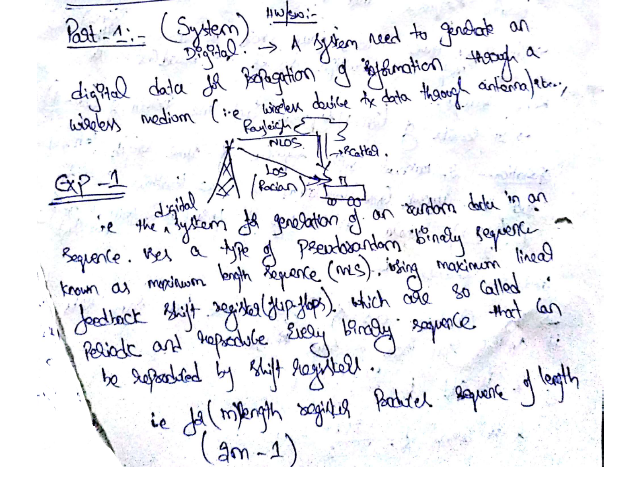 HW/SW:-
Part-1:- (System)
Digital. → A system need to generate an
digital data for Propagation of information through a
wireless mediom (i-e wireless device tx data through antenna) etc..,
Rayleigh
NLOS
→Scatter.
LOS
(Rocian)
Exp-1
digital
ie the system for generation of an random data in an
sequence. Uses a type of Pseudorandom binary sequence
known as maximum length sequence (MLS). using maximum linear
feedback shift register (flip-flops). which are so called
Periodic and reproduce Every binary sequence that can
be reproduced by shift registers.
ie for (m) length register Produces sequence of length
(2m-1)